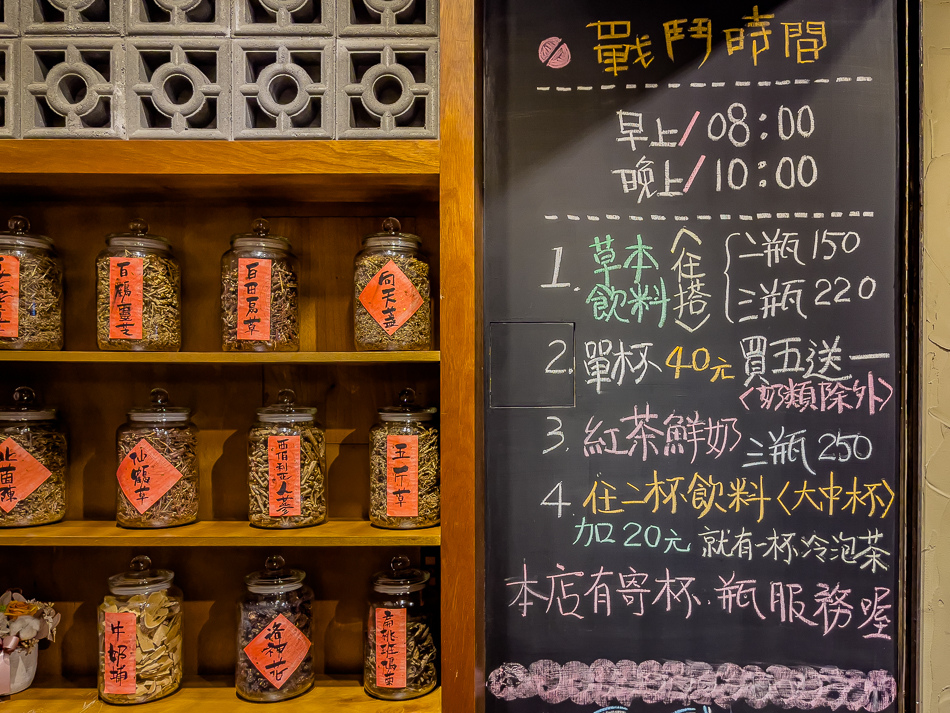 戰鬥時間
早上/08:00
晚上/10:00
1. 草本飲料〈任搭〉
二瓶150
三瓶220
2. 單杯40元 買五送一
〈奶類除外〉
3. 紅茶鮮奶 三瓶250
4. 任二杯飲料〈大中杯〉
加20元 就有一杯冷泡茶
本店有寄杯.瓶服務喔
百鶴靈芝
白田烏草
向天盞
仙鶴草
西伯利亞人蔘
五斤草
牛奶埔
洛神花